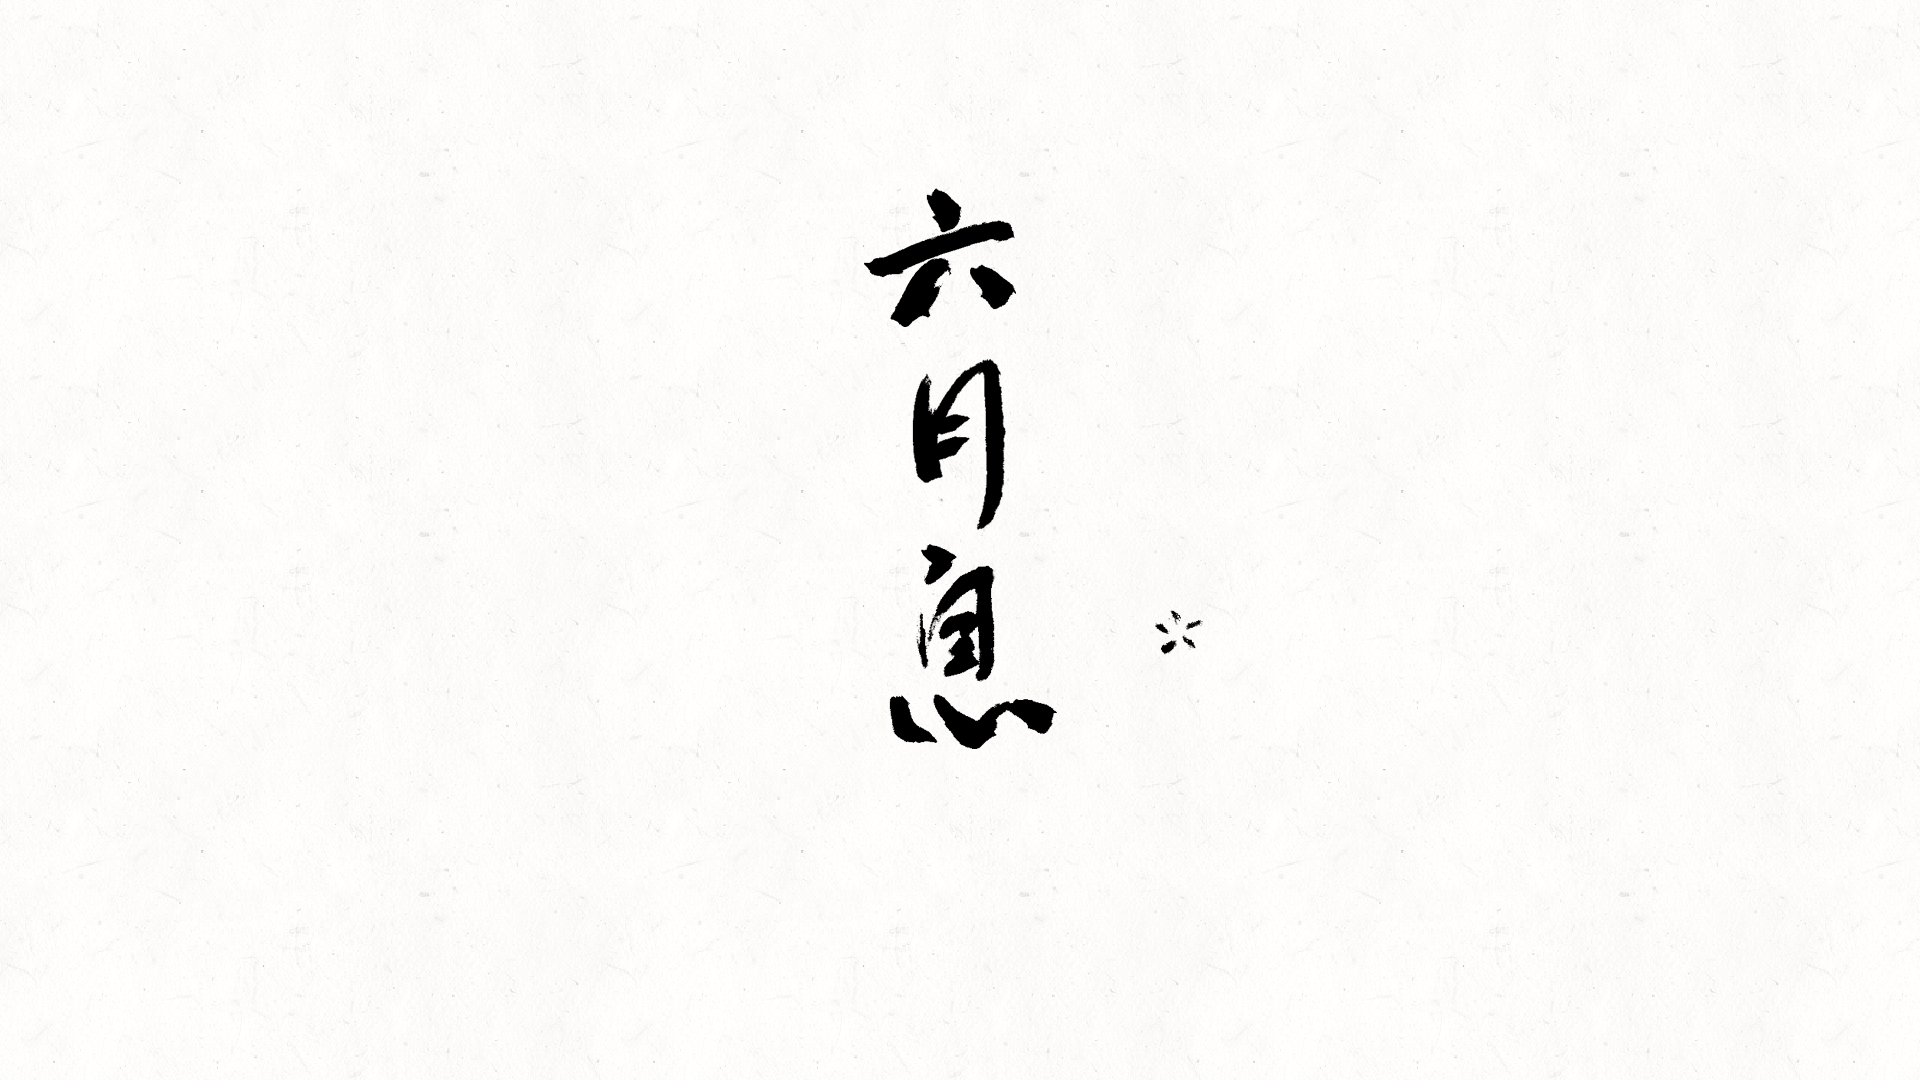 六月息